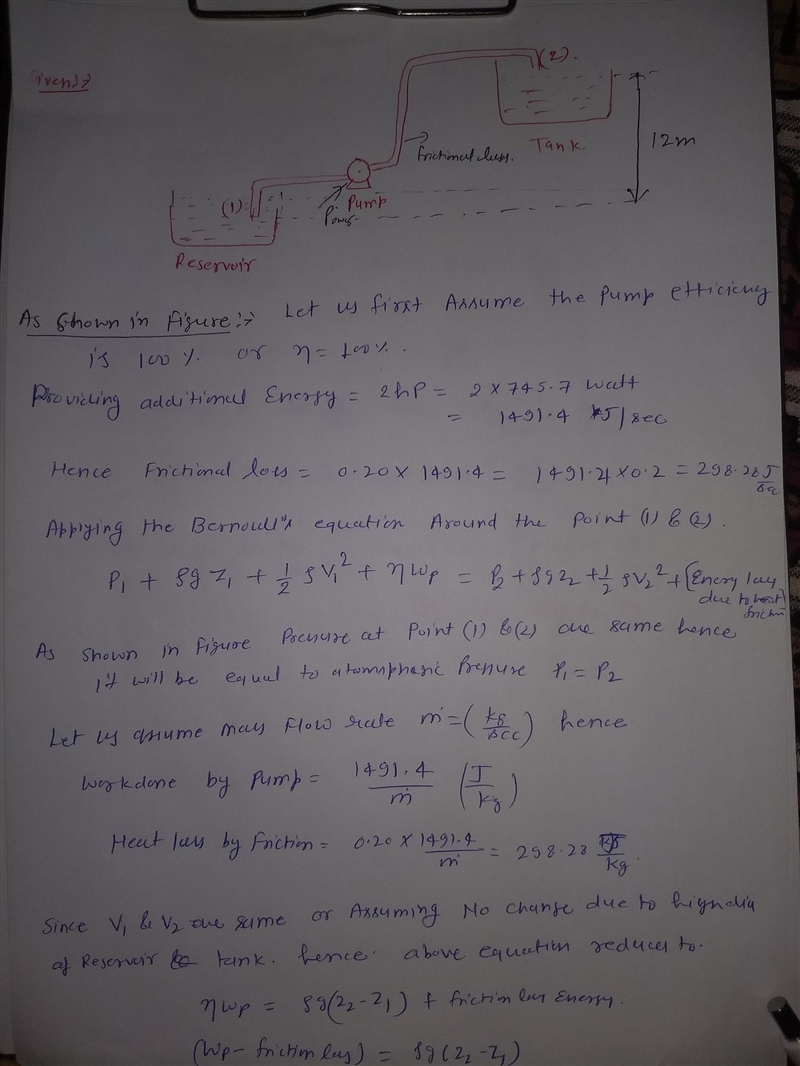 Given:→
(2).
Tank
12m
frictional loss.
(1)
Pump
Power
Reservoir
As shown in Figure :→ Let us first Assume the pump efficiency
is 100 % or η = 100%.
Providing additional Energy = 2hP = 2 × 745.7 watt
= 1491.4 J/sec
Hence Frictional loss = 0.20 × 1491.4 = 1491.4 × 0.2 = 298.28 J/sec
Applying the Bernoulli's equation Around the point (1) & (2).
P₁ + ρg Z₁ + ½ ρV₁² + ηWp = P₂ + ρgZ₂ + ½ ρV₂² + [Energy loss
due to friction]
As shown in Figure Pressure at Point (1) & (2) are same hence
it will be equal to atomspharic Pressure P₁ = P₂
Let us assume mass flow rate ṁ = (kg/sec) hence
Workdone by Pump = 1491.4/ṁ (J/kg)
Heat loss by friction = 0.20 × 1491.4/ṁ = 298.28 /kg.
Since V₁ & V₂ are same or Assuming No change due to high dia
of Reservoir & tank. hence. above equation reduces to.
ηWp = ρg(Z₂-Z₁) + friction loss Energy.
(Wp - friction loss) = ρg(Z₂-Z₁)